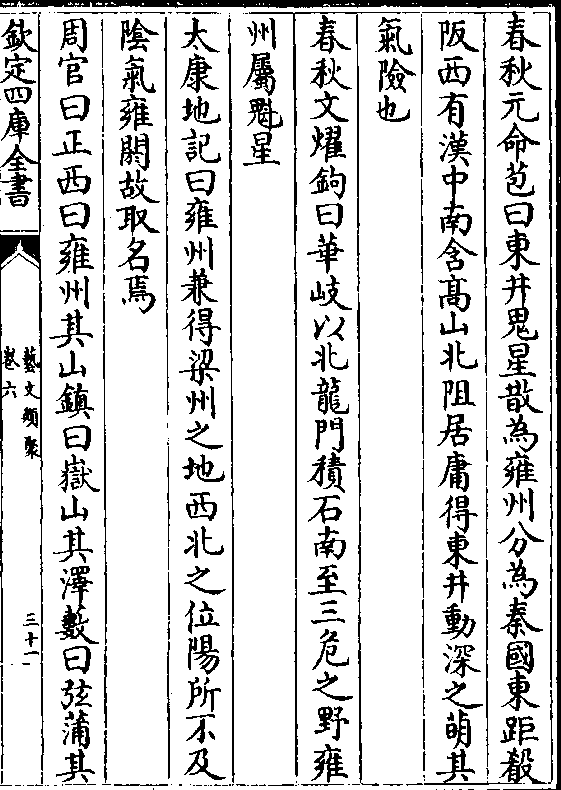 春秋元命苞曰東井鬼星散為雍州分為秦國東距殽
阪西有漢中南含髙山北阻居庸得東井動深之萌其
氣險也
春秋文燿鉤曰華岐以北龍門積石南至三危之野雍
州屬魁星
太康地記曰雍州兼得梁州之地西北之位陽所不及
陰氣雍閼故取名焉
周官曰正西曰雍州其山鎮曰嶽山其澤藪曰弦蒲其
欽定四庫全書
藝文類聚
卷六
三十一